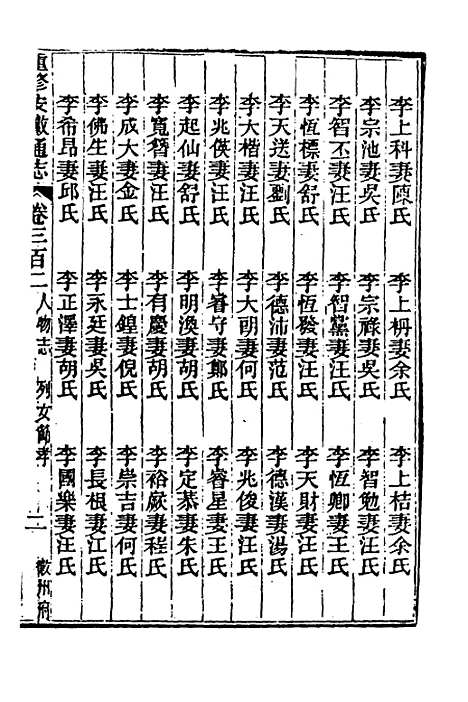 李上科妻陳氏 李上枬妻余氏 李上桔妻余氏
李宗池妻吳氏 李宗祿妻吳氏 李智勉妻汪氏
李智丕妻汪氏 李智黨妻汪氏 李恆卿妻王氏
李恆標妻舒氏 李恆𨱏妻汪氏 李天財妻汪氏
李天送妻劉氏 李德沛妻范氏 李德漢妻湯氏
李大楷妻汪氏 李大朙妻何氏 李兆俊妻汪氏
李兆偀妻汪氏 李睿守妻鄭氏 李睿星妻王氏
李起仙妻舒氏 李明渙妻胡氏 李定恭妻朱氏
李寬簪妻汪氏 李有慶妻胡氏 李裕厥妻程氏
李成大妻金氏 李士鍠妻倪氏 李崇吉妻何氏
李佛生妻汪氏 李永廷妻吳氏 李長根妻江氏
李希昂妻邱氏 李正澤妻胡氏 李國樂妻汪氏
重修安徽通志 卷三百二 人物志 列女節孝 二 徽州府